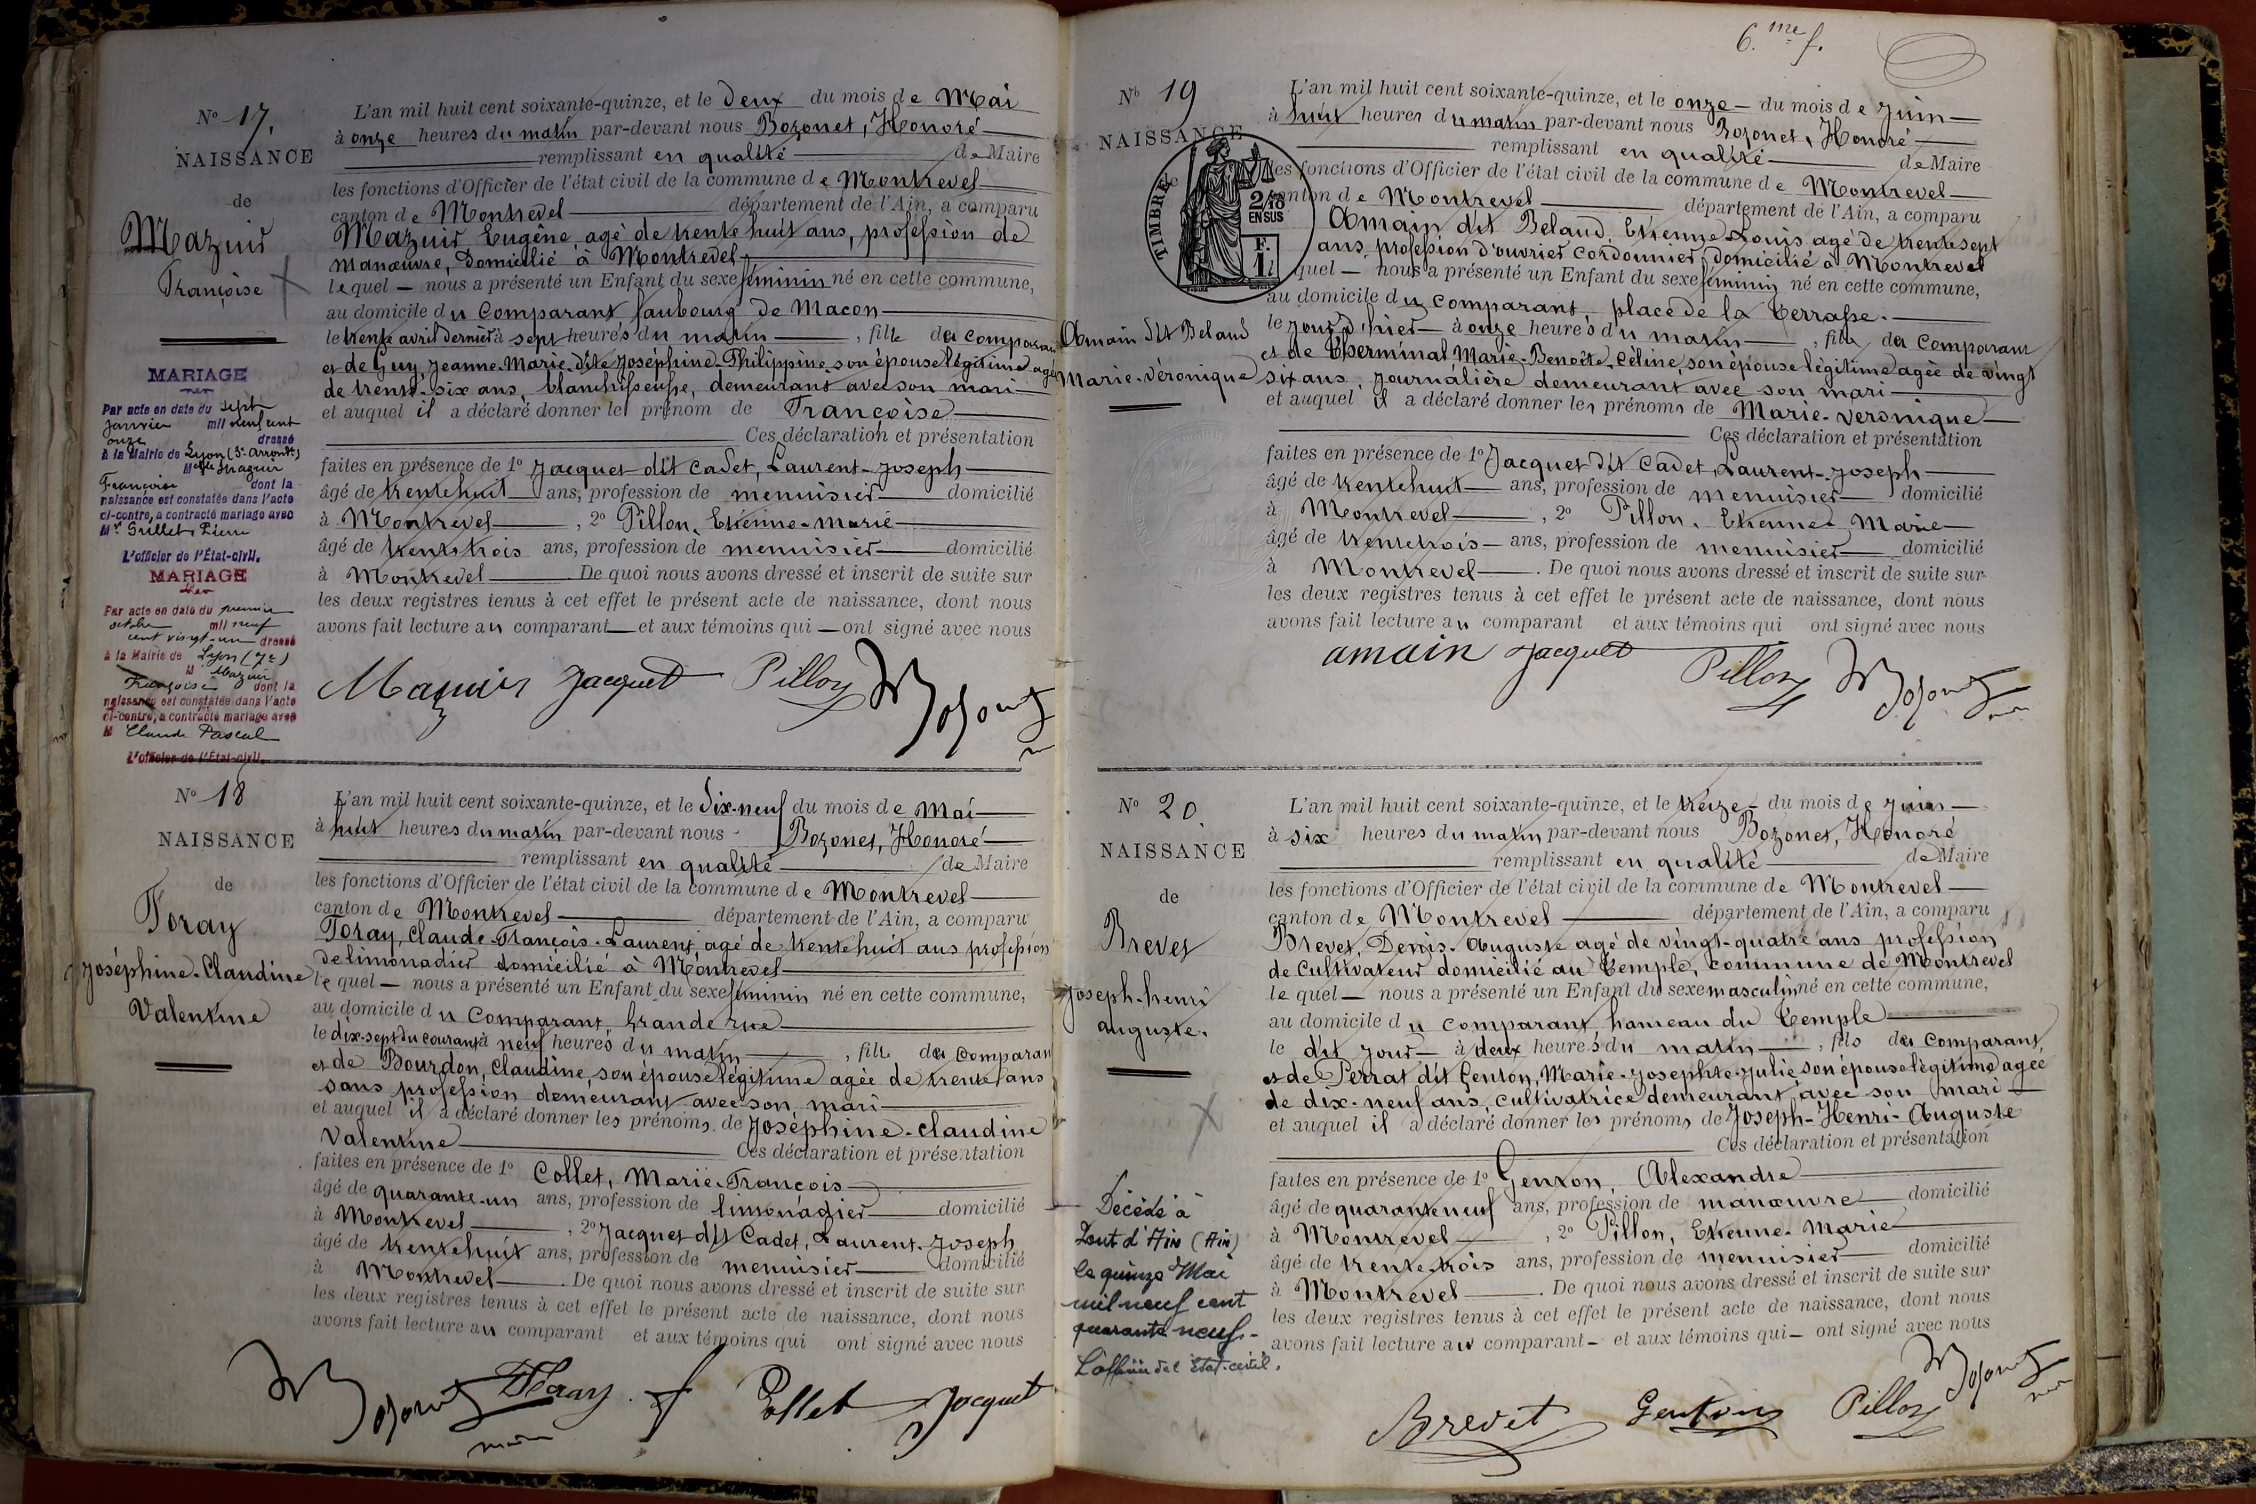 No 17.
NAISSANCE
de
Mazuir
Françoise
L'an mil huit cent soixante-quinze, et le deux du mois de Mai
à onze heures du matin par-devant nous Bozonet, Honoré
remplissant en qualité de Maire
les fonctions d'Officier de l'état civil de la commune de Montrevel
canton de Montrevel département de l'Ain, a comparu
Mazuir Eugène agé de trente huit ans, profession de
manœuvre, domicilié à Montrevel
lequel nous a présenté un Enfant du sexe féminin né en cette commune,
au domicile du Comparant faubourg de Macon
le trente avril dernier à sept heures du matin, fille du comparant
et de Guy, Jeanne-Marie dite Joséphine-Philippine son épouse légitime agée
de trente-six ans, blanchisseuse, demeurant avec son mari
et auquel il a déclaré donner le prénom de Françoise
Ces déclaration et présentation
faites en présence de 1o Jacquet dit Cadet, Laurent-Joseph
âgé de trente huit ans, profession de menuisier domicilié
à Montrevel, 2o Pillon, Etienne-marie
âgé de trente trois ans, profession de menuisier domicilié
à Montrevel. De quoi nous avons dressé et inscrit de suite sur
les deux registres tenus à cet effet le présent acte de naissance, dont nous
avons fait lecture au comparant et aux témoins qui ont signé avec nous
Mazuir Jacquet Pillon Bozonet
MARIAGE
Par acte en date du sept
janvier mil neuf cent
onze dressé
à la Mairie de Lyon (3e arront)
Melle Mazuir
Françoise dont la
naissance est constatée dans l'acte
ci-contre, a contracté mariage avec
Mr Grillet Pierre
L'officier de l'État-civil.
MARIAGE
Par acte en date du premier
octobre mil neuf
cent vingt-un dressé
à la Mairie de Lyon (7e)
M Mazuir
Françoise dont la
naissance est constatée dans l'acte
ci-contre, a contracté mariage avec
M Claude Pascal
L'officier de l'État-civil.
No 18
NAISSANCE
de
Foray
Joséphine-Claudine
Valentine
L'an mil huit cent soixante-quinze, et le dix-neuf du mois de Mai
à huit heures du matin par-devant nous Bozonet, Honoré
remplissant en qualité de Maire
les fonctions d'Officier de l'état civil de la commune de Montrevel
canton de Montrevel département de l'Ain, a comparu
Foray, Claude-François-Laurent, agé de trente huit ans profession
de limonadier domicilié à Montrevel
lequel nous a présenté un Enfant du sexe féminin né en cette commune,
au domicile du Comparant, Grande rue
le dix-sept du courant à neuf heures du matin, fille du comparant
et de Bourdon, Claudine, son épouse légitime agée de trente ans
sans profession demeurant avec son mari
et auquel il a déclaré donner les prénoms de Joséphine-Claudine
Valentine Ces déclaration et présentation
faites en présence de 1o Collet, Marie-François
âgé de quarante-un ans, profession de limonadier domicilié
à Montrevel, 2o Jacquet dit Cadet, Laurent-Joseph
âgé de trente huit ans, profession de menuisier domicilié
à Montrevel. De quoi nous avons dressé et inscrit de suite sur
les deux registres tenus à cet effet le présent acte de naissance, dont nous
avons fait lecture au comparant et aux témoins qui ont signé avec nous
Bozonet Foray Collet Jacquet
6.me f.
No 19
NAISSANCE
TIMBRE
2/10 EN SUS
F. 1
Amain dit Beland
Marie-Véronique
L'an mil huit cent soixante-quinze, et le onze du mois de Juin
à huit heures du matin par-devant nous Bozonet, Honoré
remplissant en qualité de Maire
les fonctions d'Officier de l'état civil de la commune de Montrevel
canton de Montrevel département de l'Ain, a comparu
Amain dit Beland, Etienne-Louis agé de trente sept
ans, profession d'ouvrier cordonnier, domicilié à Montrevel
quel nous a présenté un Enfant du sexe féminin né en cette commune,
au domicile du comparant place de la Terrasse.
le jour d'hier à onze heures du matin, fille du comparant
et de Therminal Marie-Benoîte-Céline, son épouse légitime agée de vingt
six ans, journalière demeurant avec son mari
et auquel il a déclaré donner les prénoms de Marie-veronique
Ces déclaration et présentation
faites en présence de 1o Jacquet dit Cadet, Laurent-Joseph
âgé de trente huit ans, profession de menuisier domicilié
à Montrevel, 2o Pillon, Etienne Marie
âgé de trente trois ans, profession de menuisier domicilié
à Montrevel. De quoi nous avons dressé et inscrit de suite sur
les deux registres tenus à cet effet le présent acte de naissance, dont nous
avons fait lecture au comparant et aux témoins qui ont signé avec nous
amain Jacquet Pillon Bozonet
No 20.
NAISSANCE
de
Brevet
Joseph-henri
auguste.
L'an mil huit cent soixante-quinze, et le treize du mois de Juin
à six heures du matin par-devant nous Bozonet, Honoré
remplissant en qualité de Maire
les fonctions d'Officier de l'état civil de la commune de Montrevel
canton de Montrevel département de l'Ain, a comparu
Brevet, Denis-Auguste agé de vingt-quatre ans profession
de Cultivateur domicilié au Temple, commune de Montrevel
lequel nous a présenté un Enfant du sexe masculin né en cette commune,
au domicile du comparant, hameau du Temple
le dit jour à deux heures du matin, fils du Comparant,
et de Perrat dit Genton, Marie-Josephte-Julie son épouse légitime agée
de dix-neuf ans, cultivatrice demeurant avec son mari
et auquel il a déclaré donner les prénoms de Joseph-Henri-Auguste
Ces déclaration et présentation
faites en présence de 1o Genton, Alexandre
âgé de quarante neuf ans, profession de manœuvre domicilié
à Montrevel, 2o Pillon, Etienne-Marie
âgé de trente-trois ans, profession de menuisier domicilié
à Montrevel. De quoi nous avons dressé et inscrit de suite sur
les deux registres tenus à cet effet le présent acte de naissance, dont nous
avons fait lecture au comparant et aux témoins qui ont signé avec nous
Brevet Genton Pillon Bozonet
Décédé à
Pont d'Ain (Ain)
le quinze Mai
mil neuf cent
quarante neuf.
L'officier de l'État-civil.